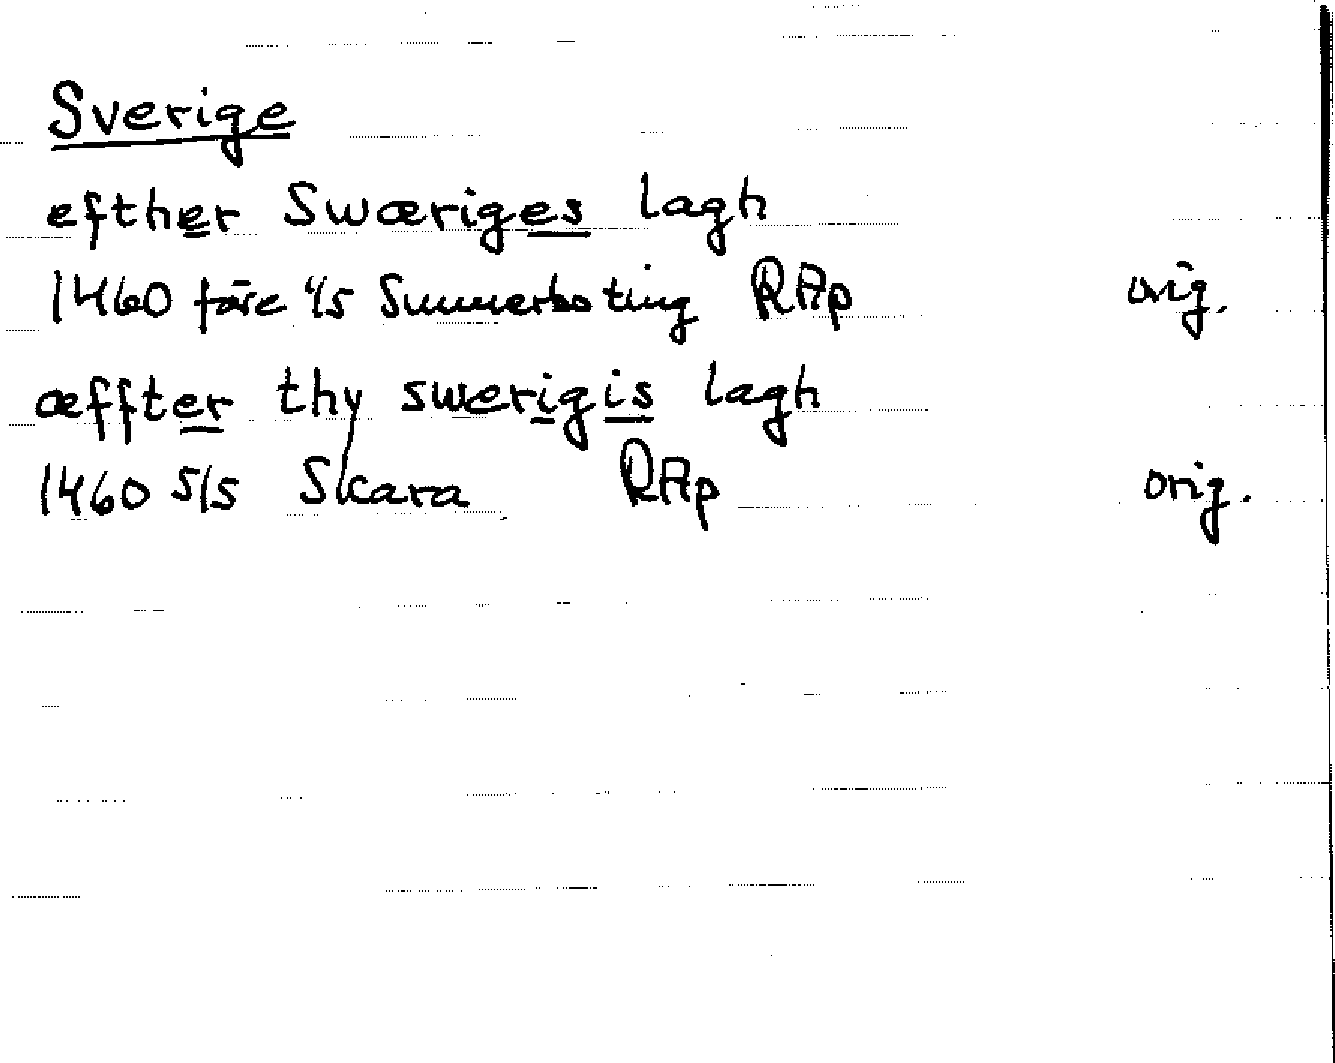 Sverige
efther Swæriges lagh
1460 före 1/5 Sunnerbo ting RAp orig.
æffter thy swerigis lagh
1460 5/5 Skara RAp orig.